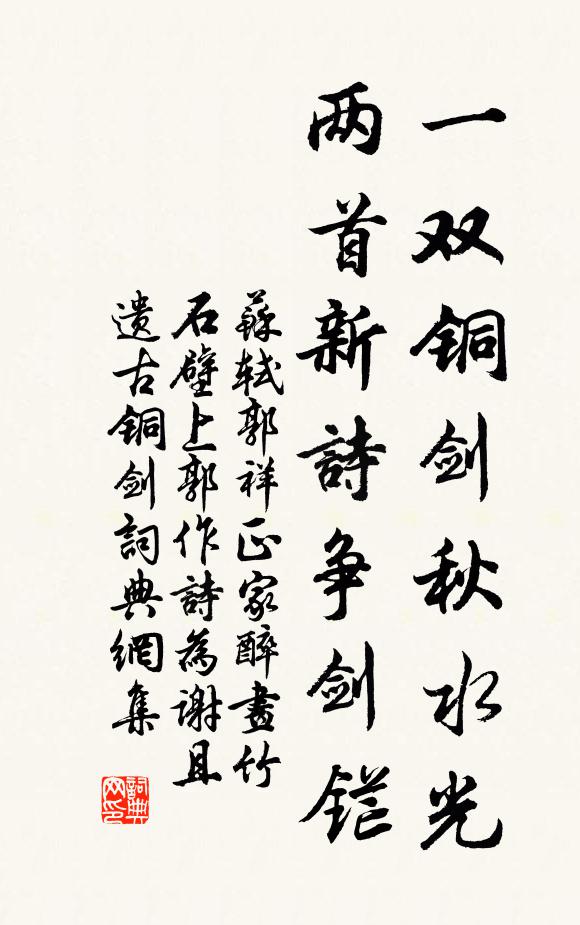 一双铜剑秋水光
两首新詩争剑铓
蘇轼郭祥正家醉畫竹
石壁上郭作詩為謝且
遗古铜剑詞典網集
詞典网印